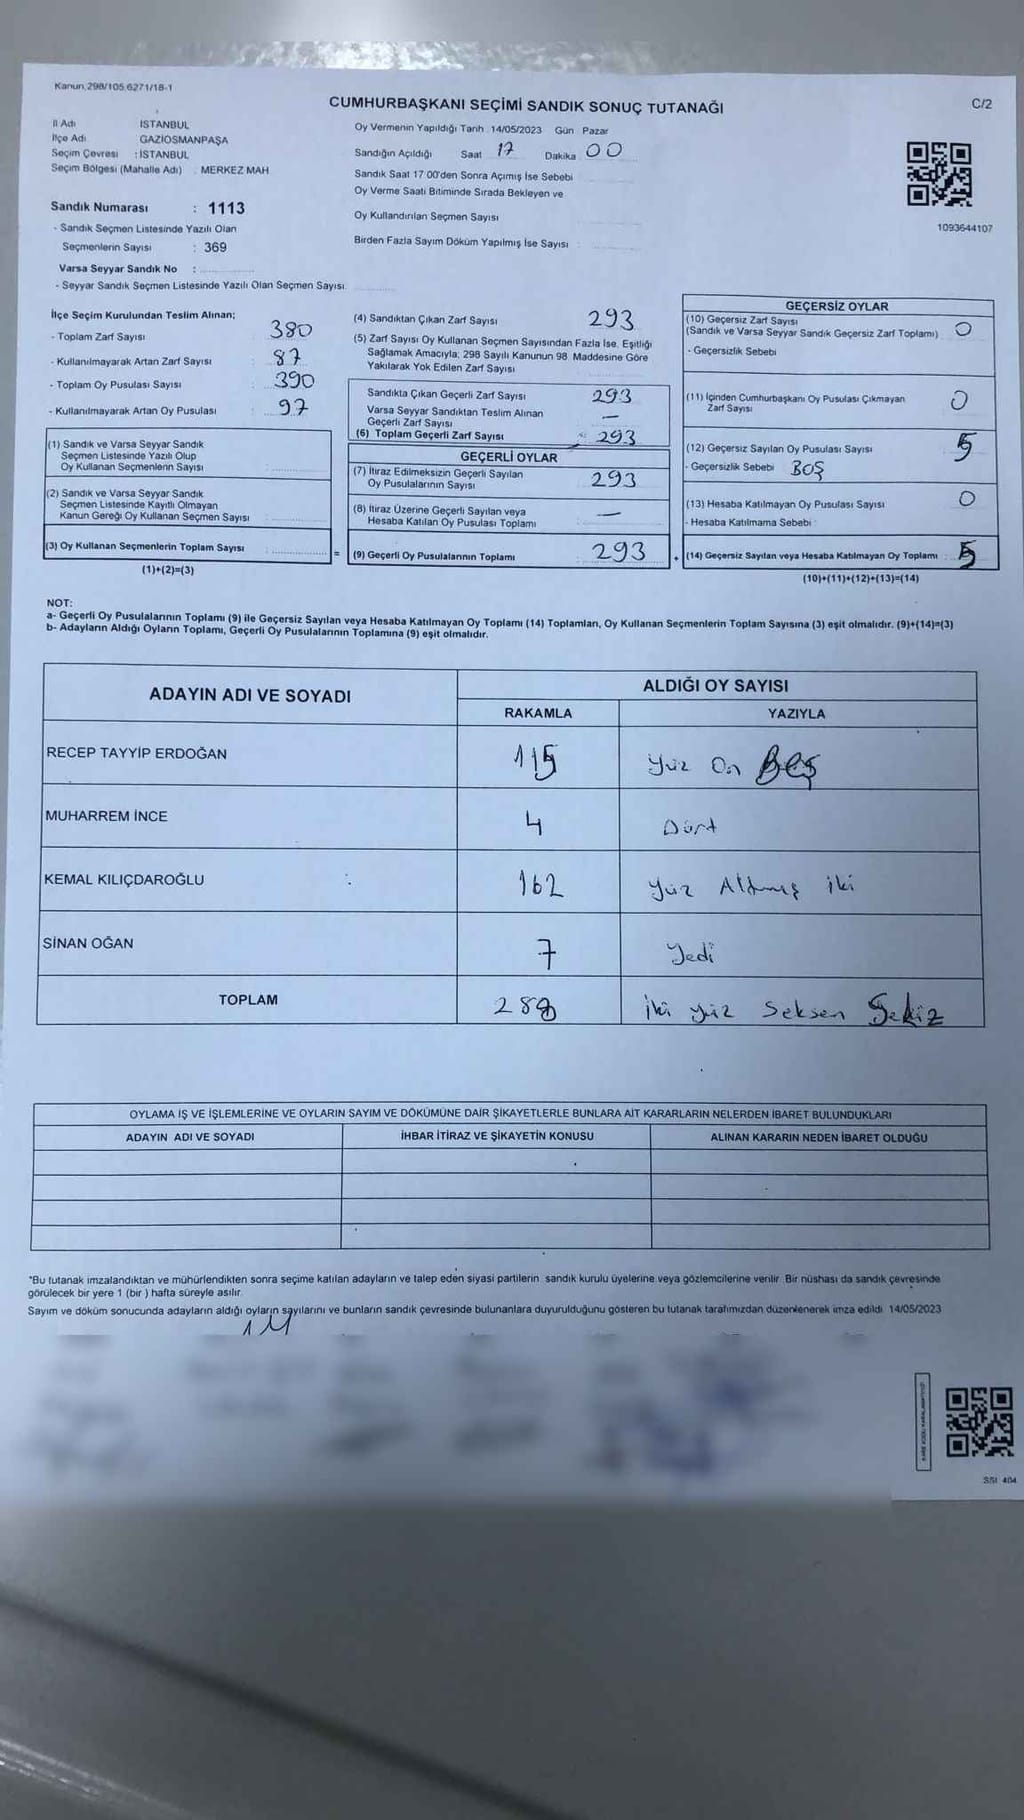 Kanun, 298/105, 6271/18-1
CUMHURBAŞKANI SEÇİMİ SANDIK SONUÇ TUTANAĞI
C/2
İl Adı İSTANBUL
İlçe Adı GAZİOSMANPAŞA
Seçim Çevresi : İSTANBUL
Seçim Bölgesi (Mahalle Adı) : MERKEZ MAH
Sandık Numarası : 1113
- Sandık Seçmen Listesinde Yazılı Olan
Seçmenlerin Sayısı : 369
Varsa Seyyar Sandık No :
- Seyyar Sandık Seçmen Listesinde Yazılı Olan Seçmen Sayısı:
Oy Vermenin Yapıldığı Tarih 14/05/2023 Gün Pazar
Sandığın Açıldığı Saat 17 Dakika 00
Sandık Saat 17 00'den Sonra Açımış İse Sebebi
Oy Verme Saati Bitiminde Sırada Bekleyen ve
Oy Kullandırılan Seçmen Sayısı
Birden Fazla Sayım Döküm Yapılmış İse Sayısı :
1093644107
İlçe Seçim Kurulundan Teslim Alınan;
- Toplam Zarf Sayısı 380
- Kullanılmayarak Artan Zarf Sayısı : 87
- Toplam Oy Pusulası Sayısı : 390
- Kullanılmayarak Artan Oy Pusulası : 97
(1) Sandık ve Varsa Seyyar Sandık
Seçmen Listesinde Yazılı Olup
Oy Kullanan Seçmenlerin Sayısı :
(2) Sandık ve Varsa Seyyar Sandık
Seçmen Listesinde Kayıtlı Olmayan
Kanun Gereği Oy Kullanan Seçmen Sayısı :
(3) Oy Kullanan Seçmenlerin Toplam Sayısı :
(1)+(2)=(3)
=
(4) Sandıktan Çıkan Zarf Sayısı 293
(5) Zarf Sayısı Oy Kullanan Seçmen Sayısından Fazla İse, Eşitliği
Sağlamak Amacıyla; 298 Sayılı Kanunun 98. Maddesine Göre
Yakılarak Yok Edilen Zarf Sayısı
Sandıkta Çıkan Geçerli Zarf Sayısı 293
Varsa Seyyar Sandıktan Teslim Alınan
Geçerli Zarf Sayısı —
(6) Toplam Geçerli Zarf Sayısı 293
GEÇERLİ OYLAR
(7) İtiraz Edilmeksizin Geçerli Sayılan
Oy Pusulalarının Sayısı 293
(8) İtiraz Üzerine Geçerli Sayılan veya
Hesaba Katılan Oy Pusulası Toplamı : —
(9) Geçerli Oy Pusulalarının Toplamı 293
+
GEÇERSİZ OYLAR
(10) Geçersiz Zarf Sayısı
(Sandık ve Varsa Seyyar Sandık Geçersiz Zarf Toplamı) 0
- Geçersizlik Sebebi
(11) İçinden Cumhurbaşkanı Oy Pusulası Çıkmayan
Zarf Sayısı 0
(12) Geçersiz Sayılan Oy Pusulası Sayısı 5
- Geçersizlik Sebebi BOŞ
(13) Hesaba Katılmayan Oy Pusulası Sayısı 0
- Hesaba Katılmama Sebebi :
(14) Geçersiz Sayılan veya Hesaba Katılmayan Oy Toplamı : 5
(10)+(11)+(12)+(13)=(14)
NOT:
a- Geçerli Oy Pusulalarının Toplamı (9) ile Geçersiz Sayılan veya Hesaba Katılmayan Oy Toplamı (14) Toplamları, Oy Kullanan Seçmenlerin Toplam Sayısına (3) eşit olmalıdır. (9)+(14)=(3)
b- Adayların Aldığı Oyların Toplamı, Geçerli Oy Pusulalarının Toplamına (9) eşit olmalıdır.
ADAYIN ADI VE SOYADI ALDIĞI OY SAYISI
RAKAMLA YAZIYLA
RECEP TAYYİP ERDOĞAN 115 Yüz On Beş
MUHARREM İNCE 4 Dört
KEMAL KILIÇDAROĞLU 162 Yüz Altmış iki
SİNAN OĞAN 7 Yedi
TOPLAM 288 İki yüz Seksen Sekiz
OYLAMA İŞ VE İŞLEMLERİNE VE OYLARIN SAYIM VE DÖKÜMÜNE DAİR ŞİKAYETLERLE BUNLARA AİT KARARLARIN NELERDEN İBARET BULUNDUKLARI
ADAYIN ADI VE SOYADI İHBAR İTİRAZ VE ŞİKAYETİN KONUSU ALINAN KARARIN NEDEN İBARET OLDUĞU
*Bu tutanak imzalandıktan ve mühürlendikten sonra seçime katılan adayların ve talep eden siyasi partilerin sandık kurulu üyelerine veya gözlemcilerine verilir. Bir nüshası da sandık çevresinde
görülecek bir yere 1 (bir) hafta süreyle asılır
Sayım ve döküm sonucunda adayların aldığı oyların sayılarını ve bunların sandık çevresinde bulunanlara duyurulduğunu gösteren bu tutanak tarafımızdan düzenlenerek imza edildi. 14/05/2023
SSI 404